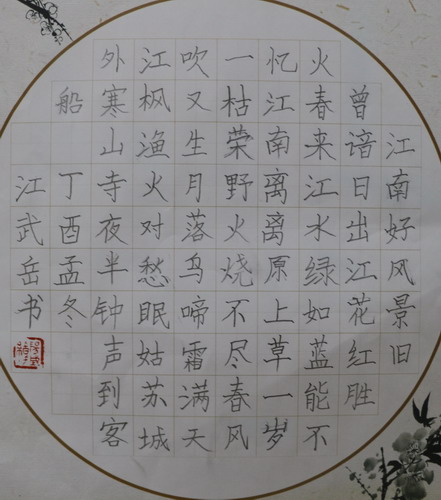 江南好风景旧
曾谙日出江花红胜
火春来江水绿如蓝能不
忆江南离离原上草一岁
一枯荣野火烧不尽春风
吹又生月落乌啼霜满天
江枫渔火对愁眠姑苏城
外寒山寺夜半钟声到客
船 丁酉孟冬
江武岳书